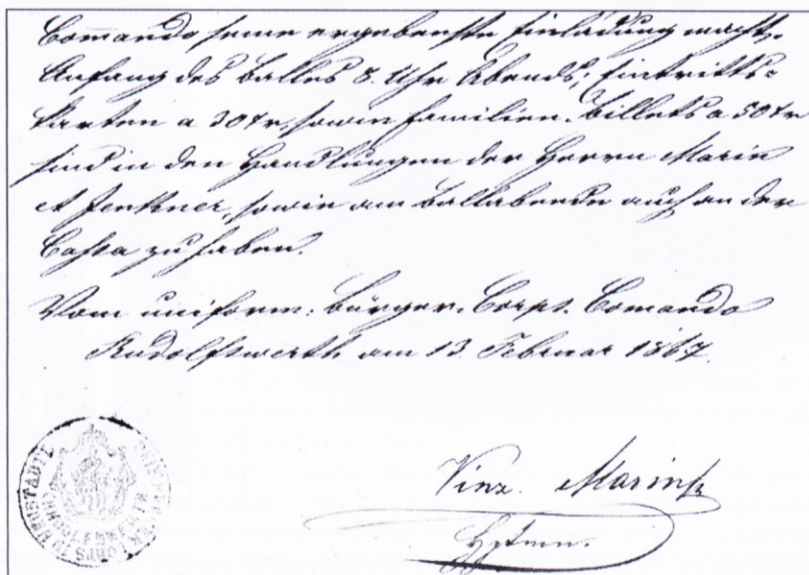 Comando seine ergebenste Einladung macht.
Anfang des Balles 8. Uhr Abends; Eintritts=
karten a 30 kr, sowie Familien-Billets a 50 kr
sind in den Handlungen der Herrn Marin
et Jenkner, sowie am Ballabende auch an der
Cassa zu haben.
Vom uniform: Bürger-Corps-Comando
Rudolfswerth am 13 Februar 1867.
Vinz. Marin
Hptmn.